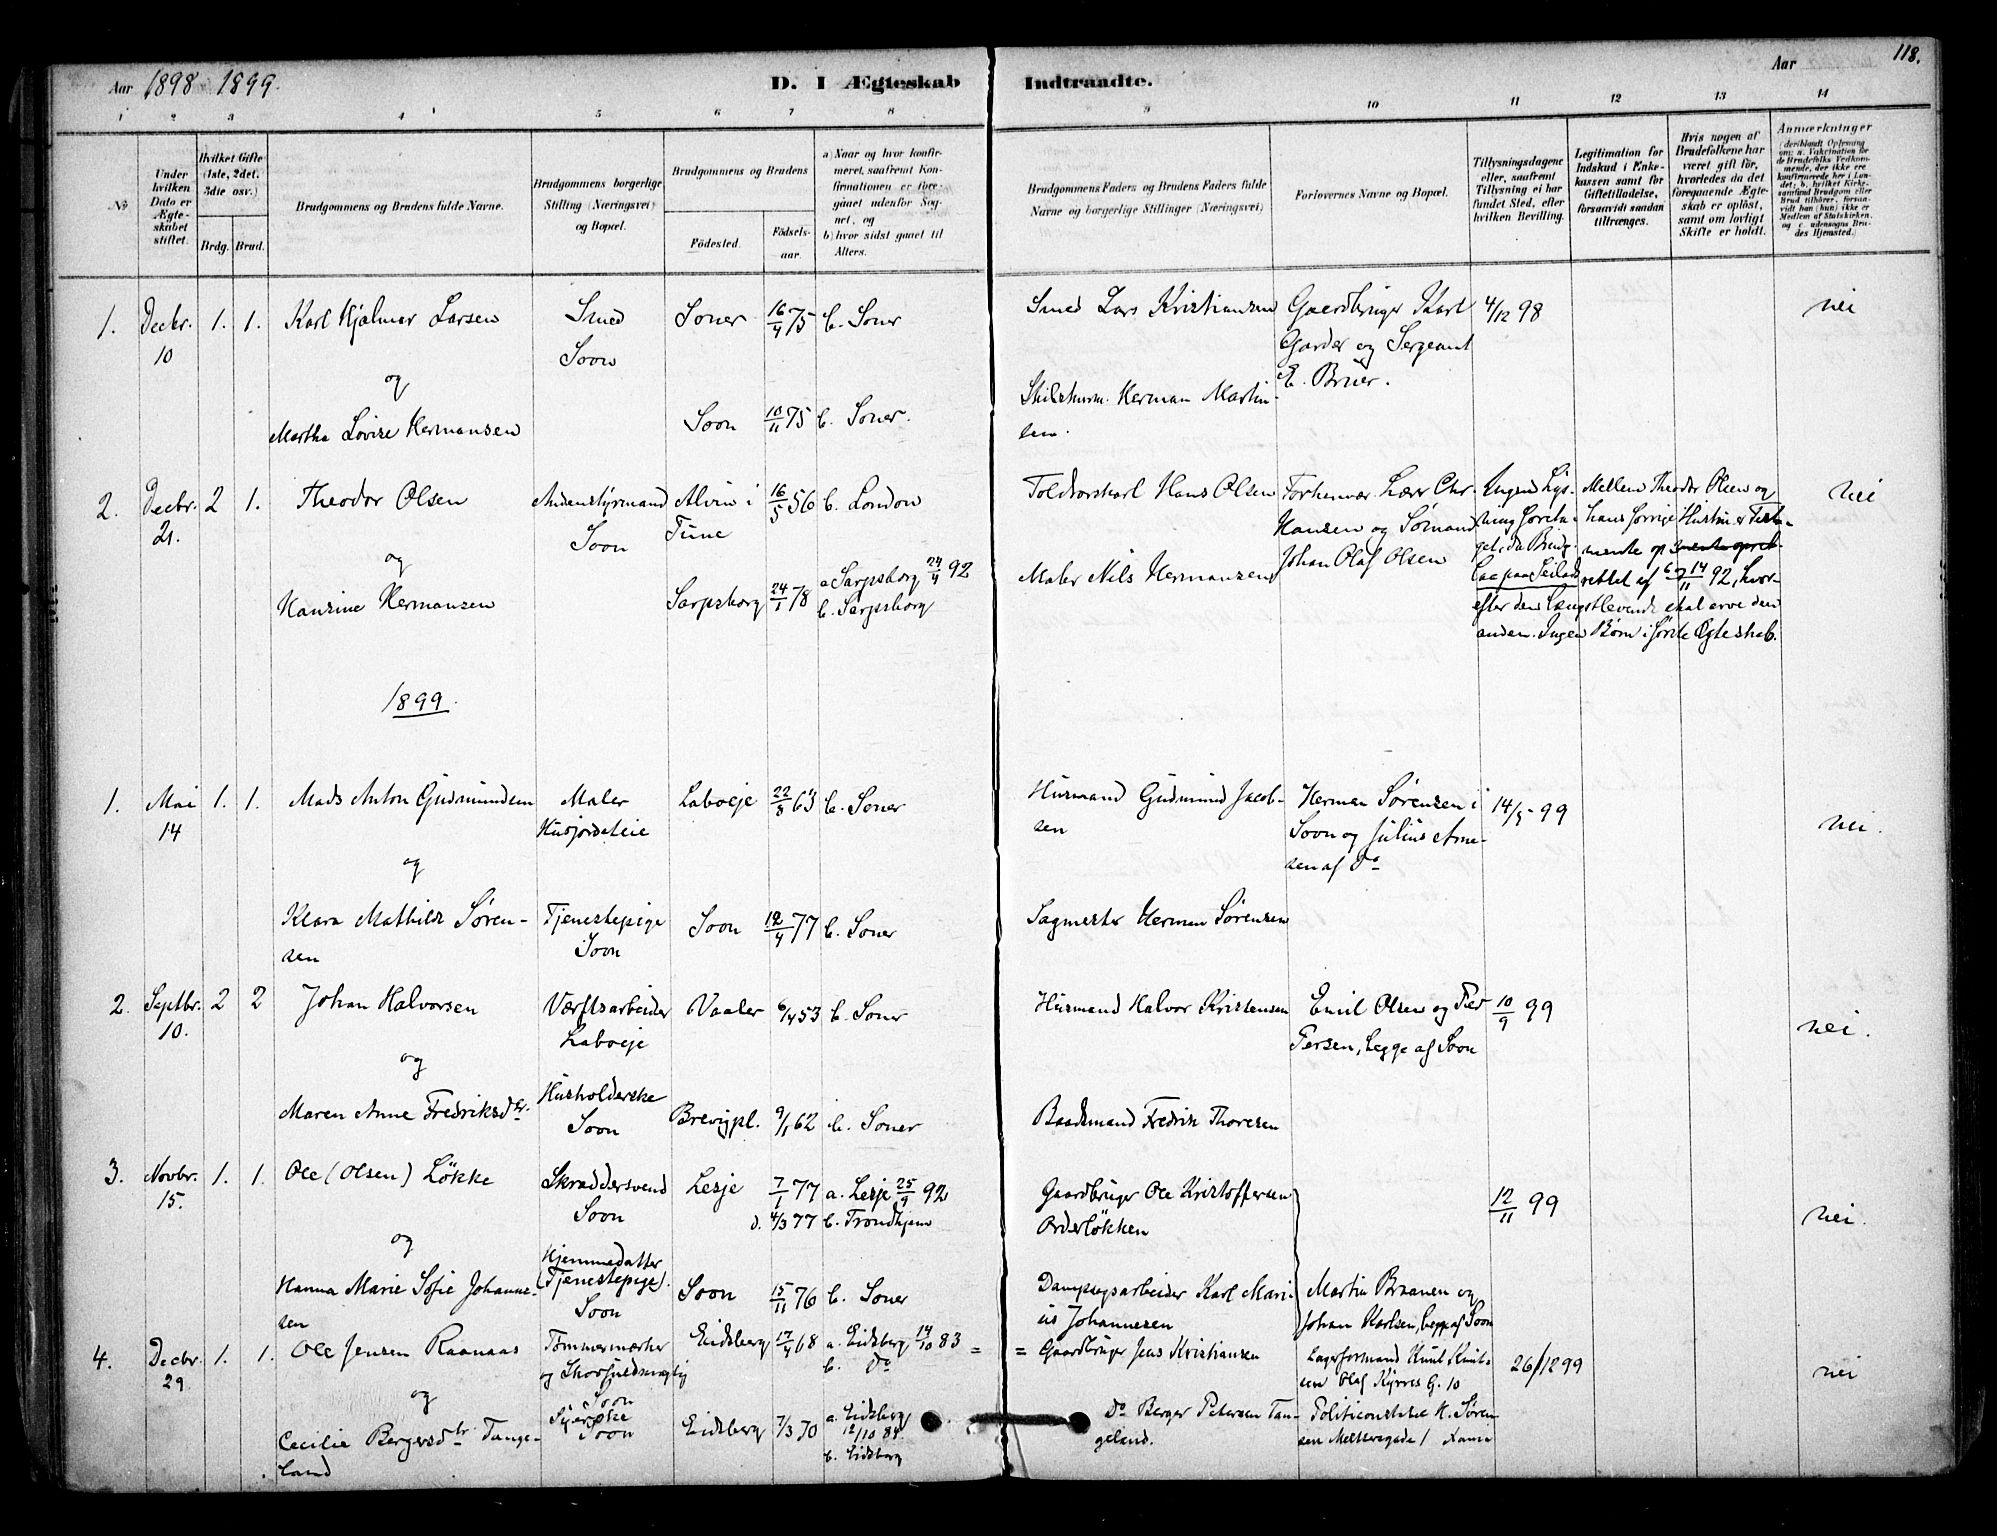 Aar 1898-1899.
D. I Ægteskab Indtraadte.
Aar
118.
1 2 3 4 5 6 7 8 9 10 11 12 13 14
No
Under hvilken Dato er Ægteskabet stiftet.
Hvilket Gifte (1ste, 2det, 3die osv.)
Brdg. Brud.
Brudgommens og Brudens fulde Navne.
Brudgommens borgerlige Stilling (Næringsvei) og Bopæl.
Brudgommens og Brudens
Födested. Födsels-aar.
a) Naar og hvor konfirmeret, saafremt Konfirmationen er foregaaet udenfor Sognet, og
b) hvor sidst gaaet til Alters.
Brudgommens Faders og Brudens Faders fulde Navne og borgerlige Stillinger (Næringsvei)
Forlovernes Navne og Bopæl.
Tillysningsdagene eller, saafremt Tillysning ei har fundet Sted, efter hvilken Bevilling.
Legitimation for Indskud i Enkekassen samt for Giftetilladelse, forsaavidt saadan tiltrænges.
Hvis nogen af Brudefolkene har været gift før, hvorledes da det foregaaende Ægteskab er oplöst, samt om lovligt Skifte er holdt.
Anmærkninger
1. Decbr. 10 1. 1. Karl Hjalmar Larsen Smed Soon Soner 16/4 75 b. Soner Smed Lars Kristiansen Gaardbruger Karl Garder og Sergeant E. Bruer. 4/12 98 nei
og
Martha Lovise Hermansen Soon 10/11 75 b. Soner. Skibstøm. Herman Martinsen.
2. Decbr. 21. 2 1. Theodor Olsen Andenstyrmand Soon Alvim i Tune 16/5 56 b. London Toldroskarl Hans Olsen Forhenvær. Lærer Chr. Hansen og Sømand Johan Olaf Olsen nei
Mellem Theodor Olsen og hans forrige Hustru er Testamente op
rettet af 14/11 92, hvor-
efter den længstlevende skal arve den
anden. Ingen Børn i første Ægteskab.
og
Hansine Hermansen Sarpsborg 24/1 78 a Sarpsborg 24/4 92 b. Sarpsborg Maler Nils Hermansen
1899.
1. Mai 14 1. 1. Mads Anton Gudmundsen Maler Husjordeteie Laboeje 22/8 63 b. Soner Husmand Gudmund Jacobsen Herman Sørensen i Soon og Julius Arnesen af Do 14/5 - 99 nei.
og
Klara Mathilde Sørensen Tjenestepige Soon Soon 12/4 77 b. Soner Sagmester Herman Sørensen
2. Septbr. 10. 2 2 Johan Halvorsen Værftsarbeider Laboeje Vaaler 6/4 53 b. Soner Husmand Halvor Kristensen Emil Olsen og Peder Persen, begge af Soon 10/9 99 nei.
og
Maren Anne Fredriksdtr. Husholderske Soon Brevigpl. 9/1 62 b. Soner Baadsmand Fredrik Thoresen
3. Novbr. 15. 1. 1. Ole (Olsen) Løkke Skræddersvend Soon Lesje 7/1 77 a. Lesje 25/9 92 Gaardbruger Ole Kristoffersen 12/11 99 nei.
d. 4/3 77 b. Trondhjem
og
Hanna Marie Sofie Johannesen Hjemmedatter (Tjenestepige). Soon Soon 15/11 76 b. Soner Dampsagsarbeider Karl Marius Johannesen Martin Braanen og Johan Karlsen, begge af Soon
4. Decbr. 29 1. 1. Ole Jensen Raanaas Tømmermærker og Skovfuldmægtig Soon Eidsberg 17/4 68 a. Eidsberg 14/10 83 b. Do = = Gaardbruger Jens Kristiansen Lagerformand Knut Knutsen Olaf Kyrres G. 10 26/12 99 nei
og
Cecilie Bergersdtr. Tangeland Syerske Soon Eidsberg 7/3 70 a. Eidsberg 12/10 84. b. Eidsberg Do Berger Petersen Tangeland. Politiconstabel K. Sørensen